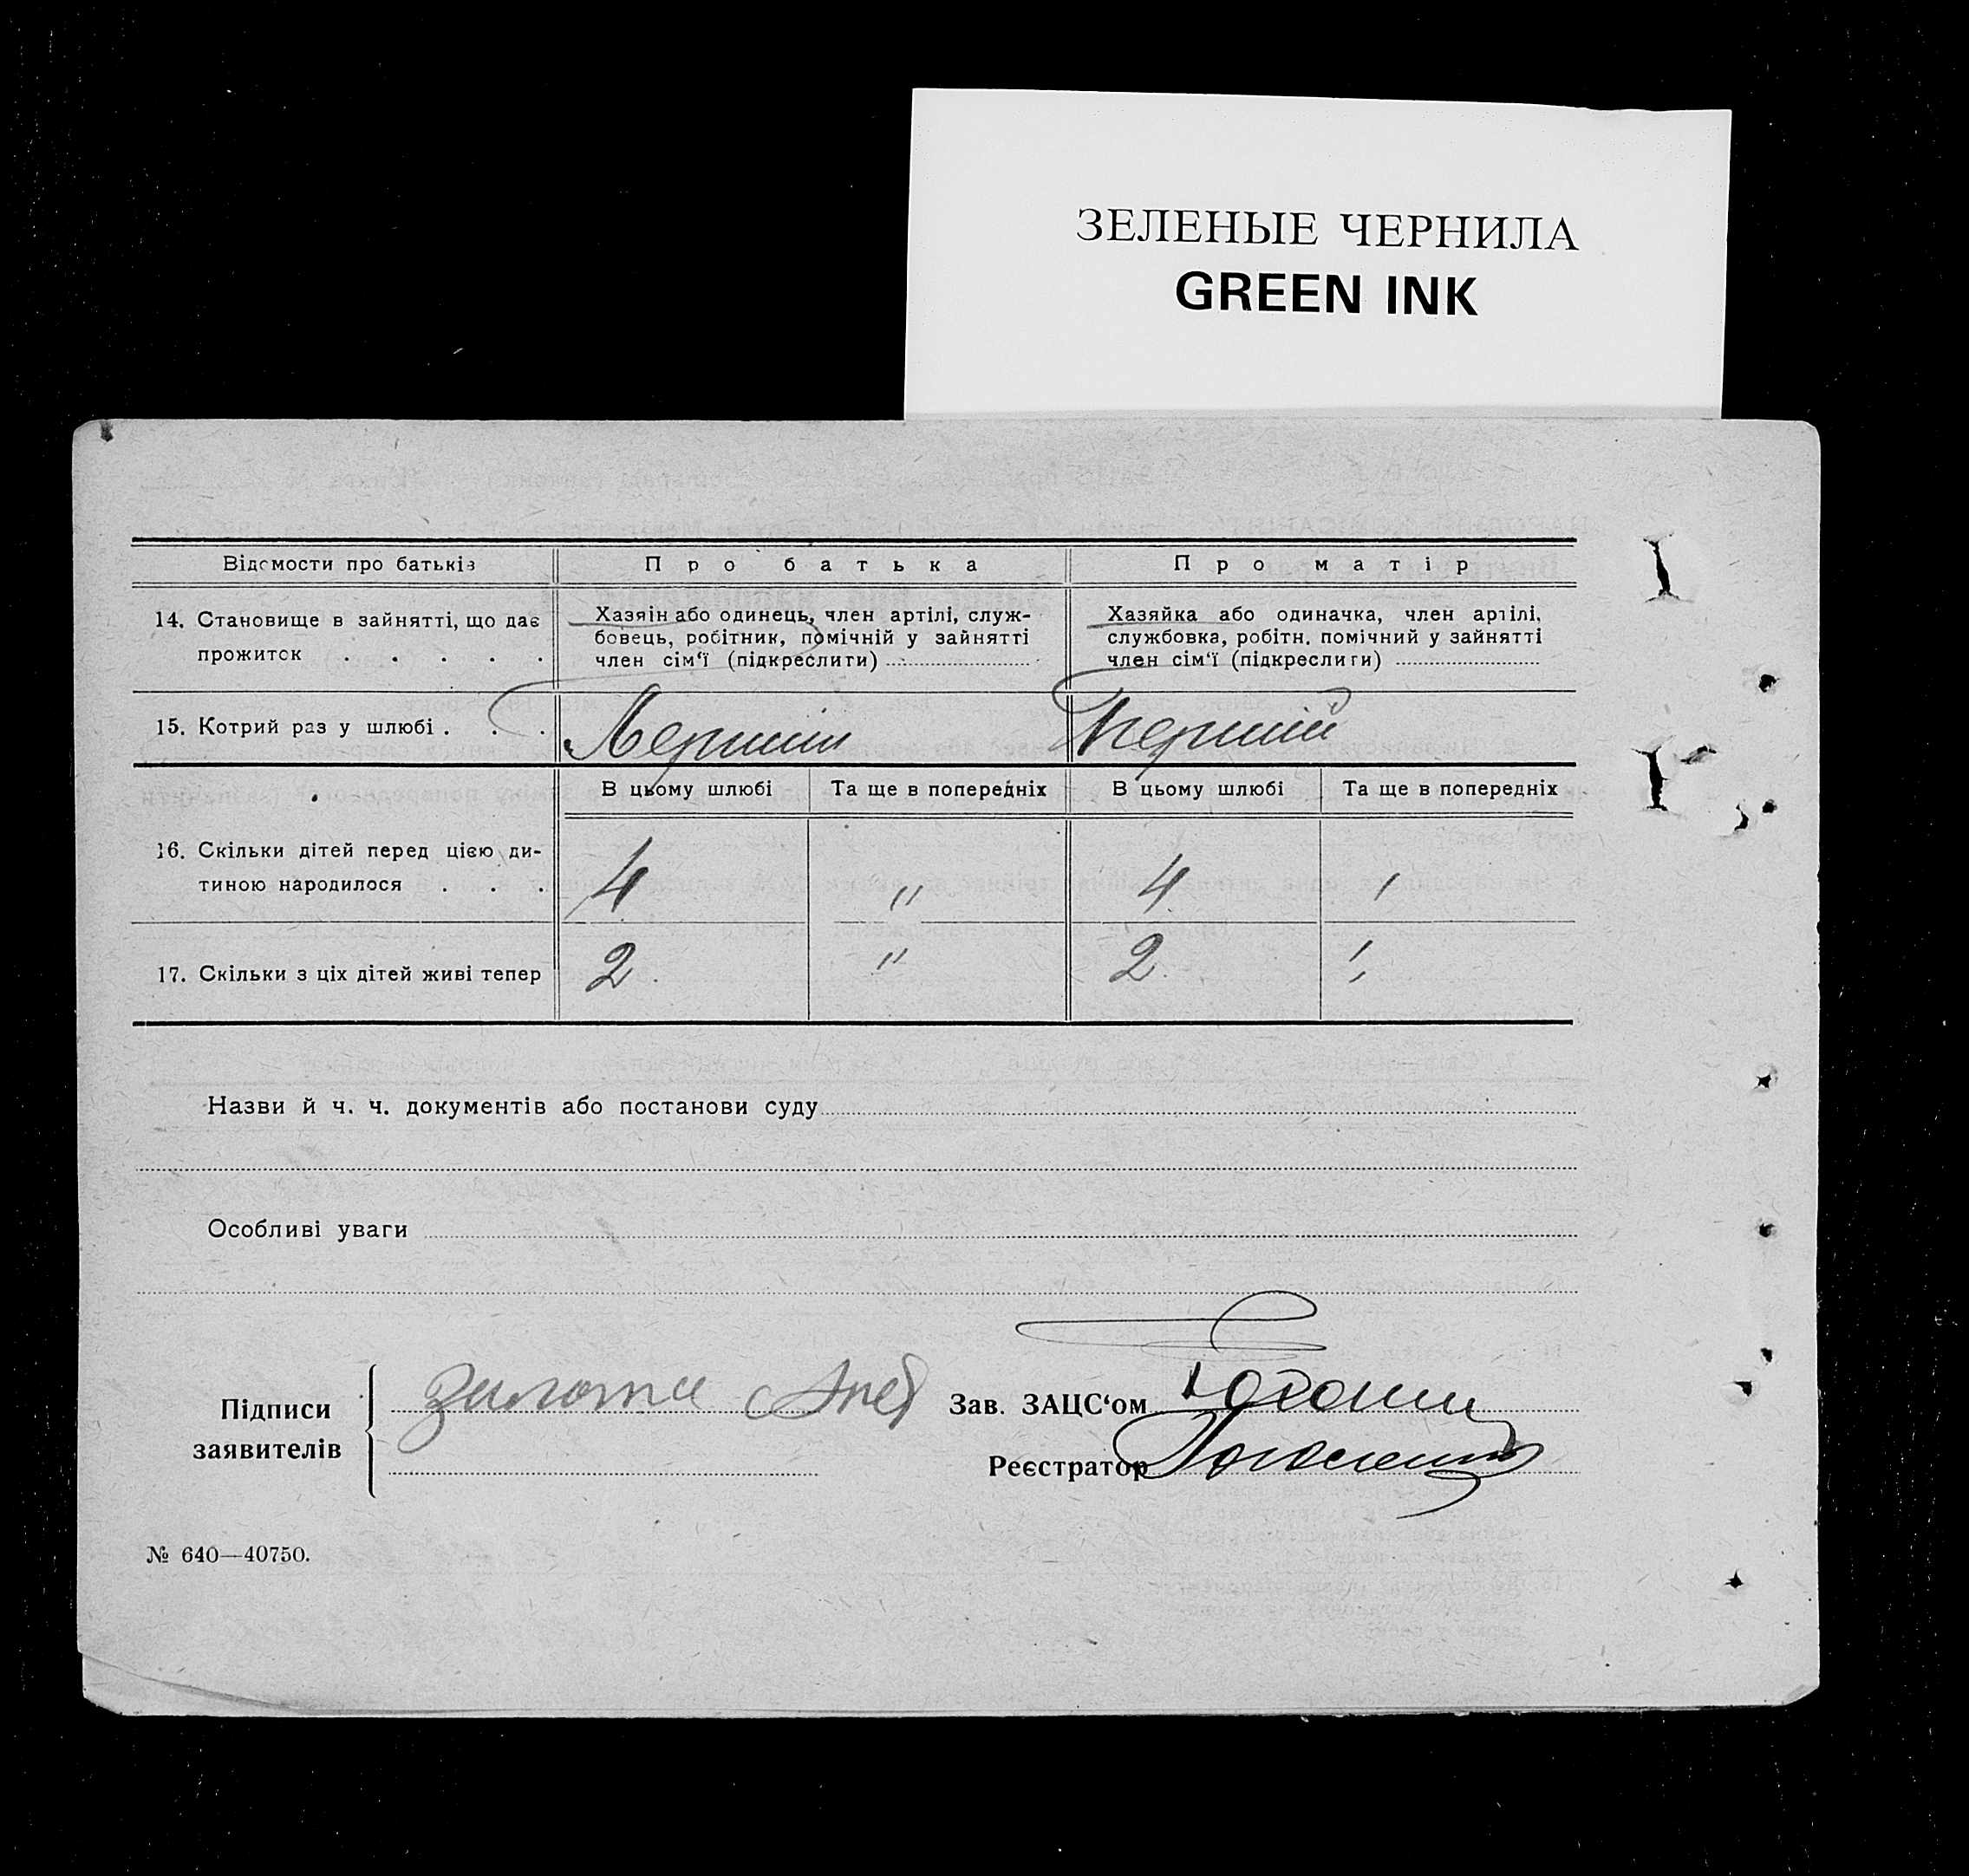 ЗЕЛЕНЫЕ ЧЕРНИЛА
GREEN INK
Відомости про батьків
Про батька
Про матір
14. Становище в зайнятті, що дає
прожиток . . . . .
Хазяін або одинець, член артілі, служ-
бовець, робітник, помічній у зайнятті
член сім'ї (підкреслити)
Хазяйка або одиначка, член артілі,
службовка, робітн. помічний у зайнятті
член сім'ї (підкреслити)
15. Котрий раз у шлюбі . . .
Перший
Перший
В цьому шлюбі
Та ще в попередніх
В цьому шлюбі
Та ще в попередніх
16. Скільки дітей перед цією ди-
тиною народилося . . .
4
"
4
17. Скільки з ціх дітей живі тепер
2
"
2
Назви й ч. ч. документів або постанови суду
Особливі уваги
Підписи
заявителів
Зав. ЗАЦС'ом
Реєстратор
№ 640—40750.